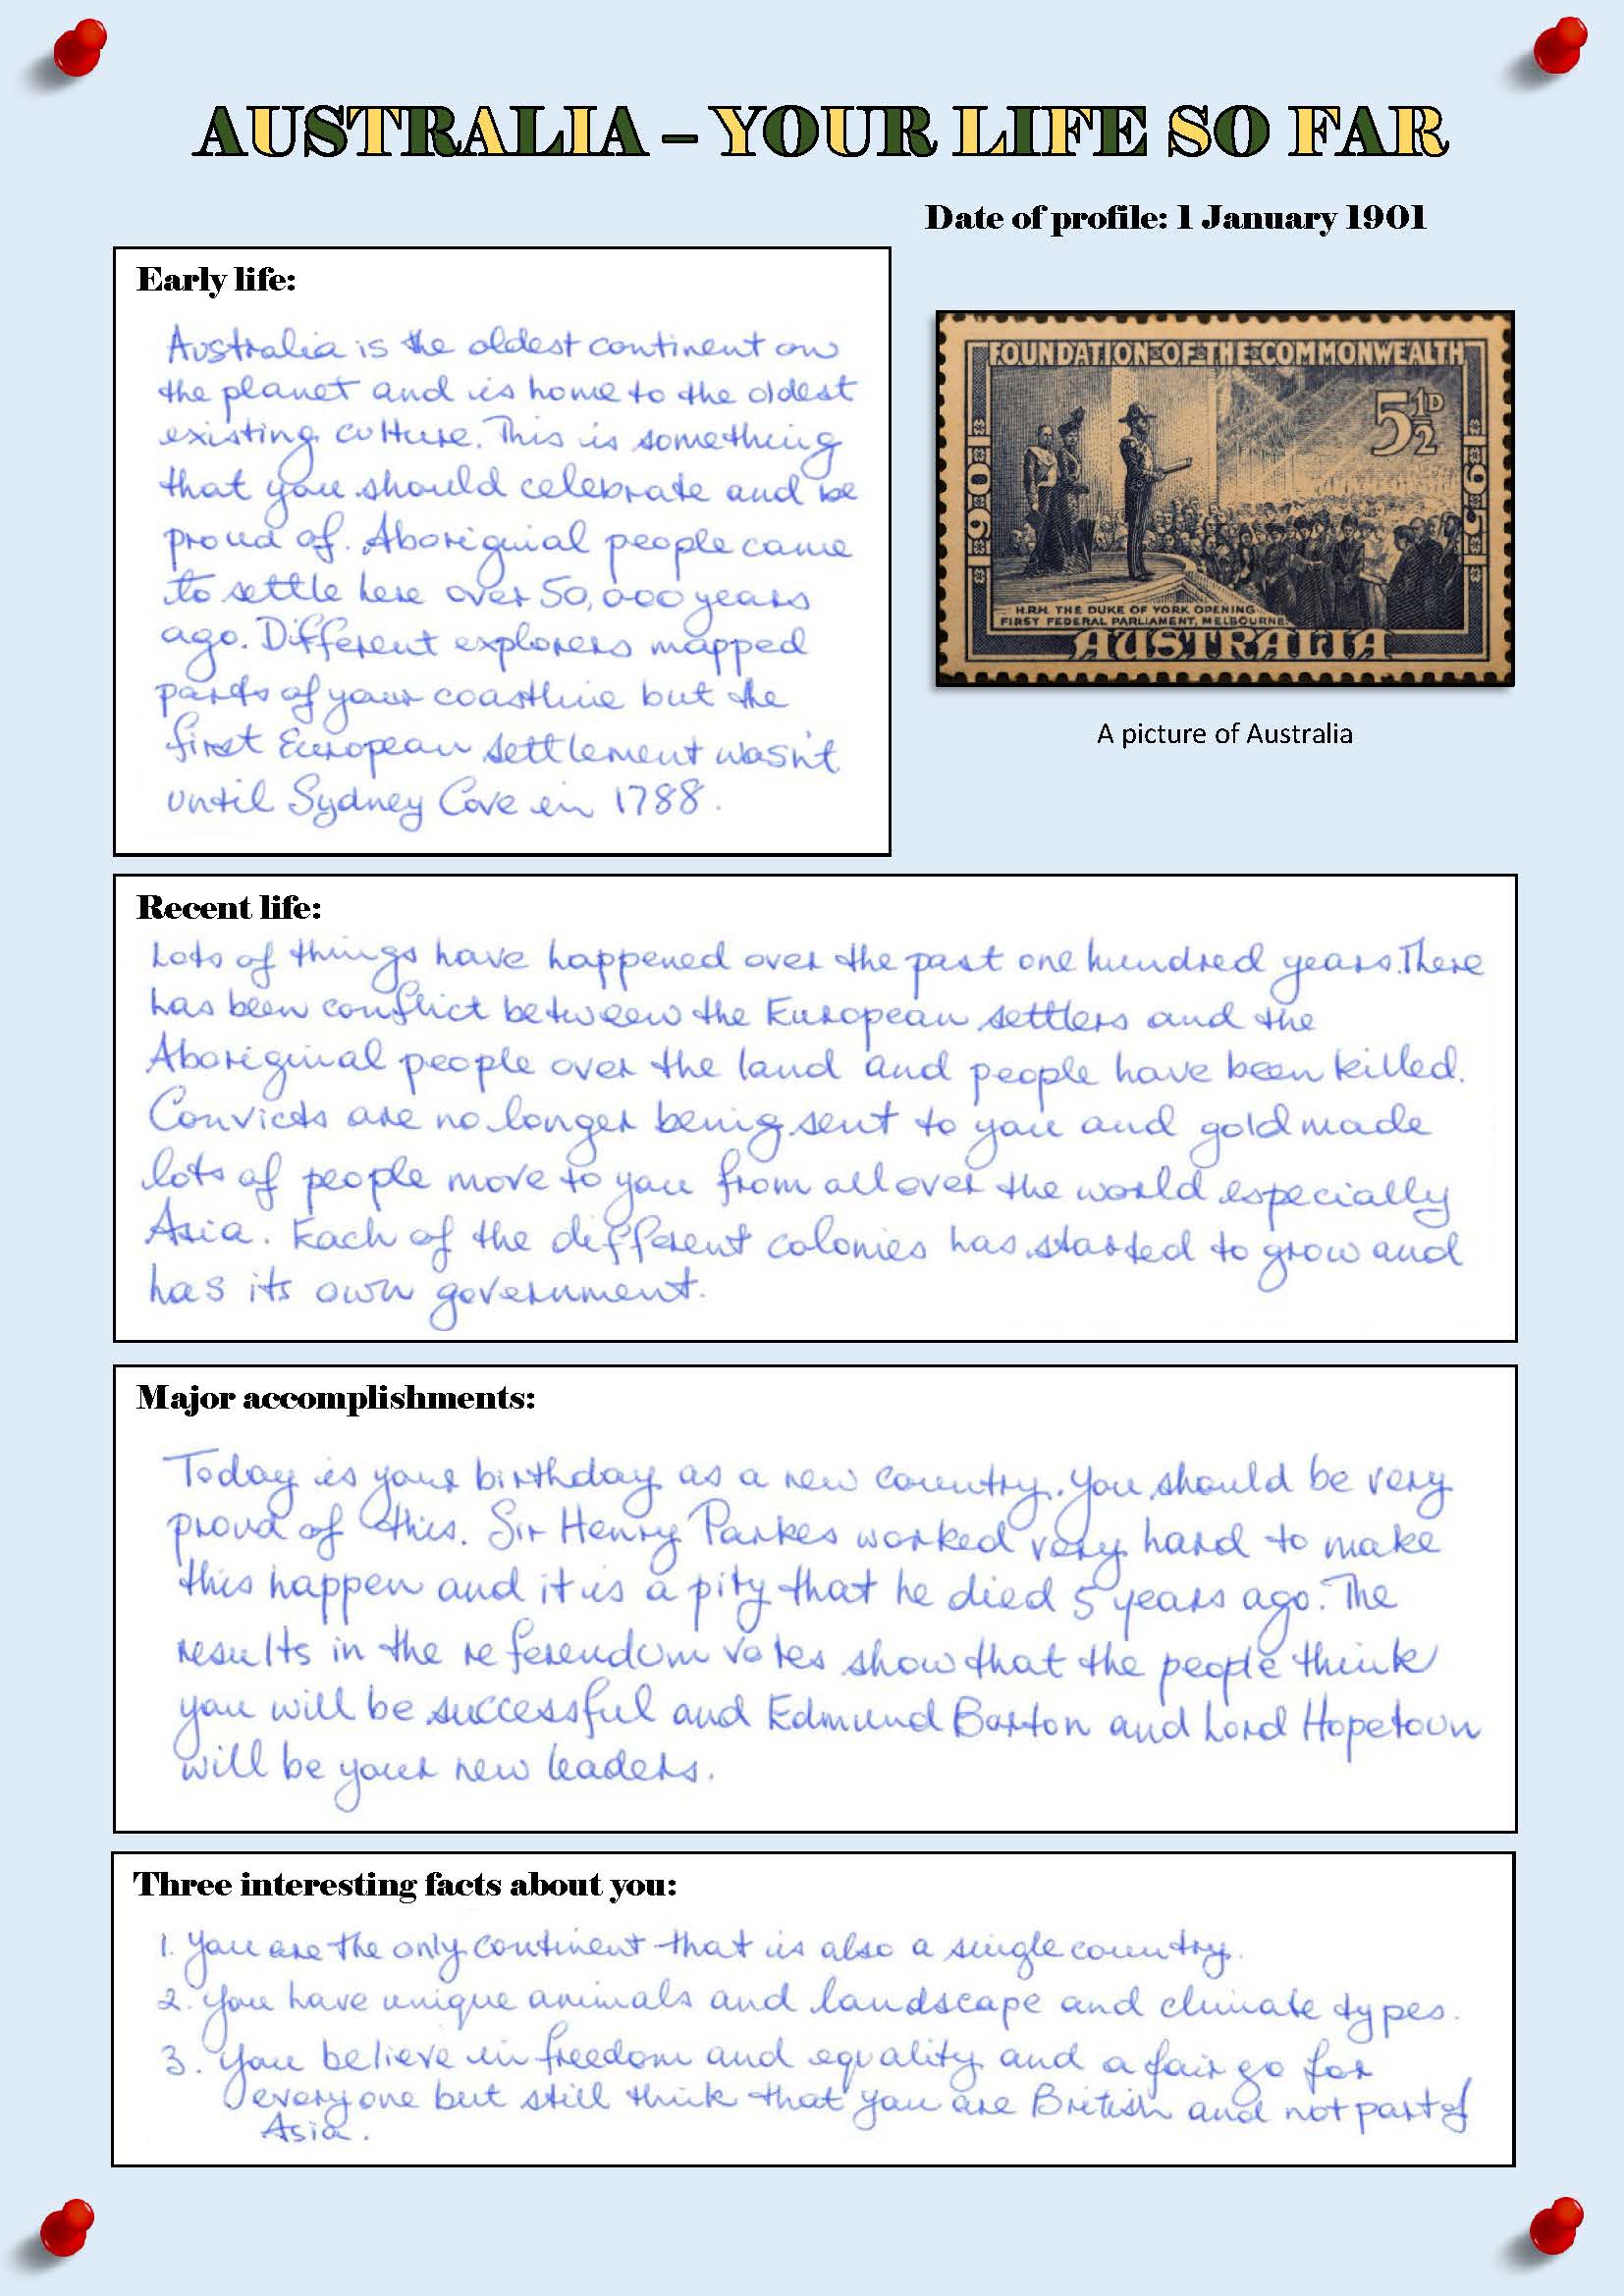 AUSTRALIA – YOUR LIFE SO FAR
Date of profile: 1 January 1901
Early life:
Australia is the oldest continent on
the planet and is home to the oldest
existing culture. This is something
that you should celebrate and be
proud of. Aboriginal people came
to settle here over 50,000 years
ago. Different explorers mapped
parts of your coastline but the
first European settlement wasn't
until Sydney Cove in 1788.
FOUNDATION OF THE COMMONWEALTH
5½D
1901
1951
H.R.H. THE DUKE OF YORK OPENING
FIRST FEDERAL PARLIAMENT, MELBOURNE.
AUSTRALIA
A picture of Australia
Recent life:
Lots of things have happened over the past one hundred years. There
has been conflict between the European settlers and the
Aboriginal people over the land and people have been killed.
Convicts are no longer being sent to you and gold made
lots of people move to you from all over the world especially
Asia. Each of the different colonies has started to grow and
has its own government.
Major accomplishments:
Today is your birthday as a new country. You should be very
proud of this. Sir Henry Parkes worked very hard to make
this happen and it is a pity that he died 5 years ago. The
results in the referendum votes show that the people think
you will be successful and Edmund Barton and Lord Hopetoun
will be your new leaders.
Three interesting facts about you:
1. You are the only continent that is also a single country.
2. You have unique animals and landscape and climate types.
3. You believe in freedom and equality and a fair go for
everyone but still think that you are British and not part of
Asia.